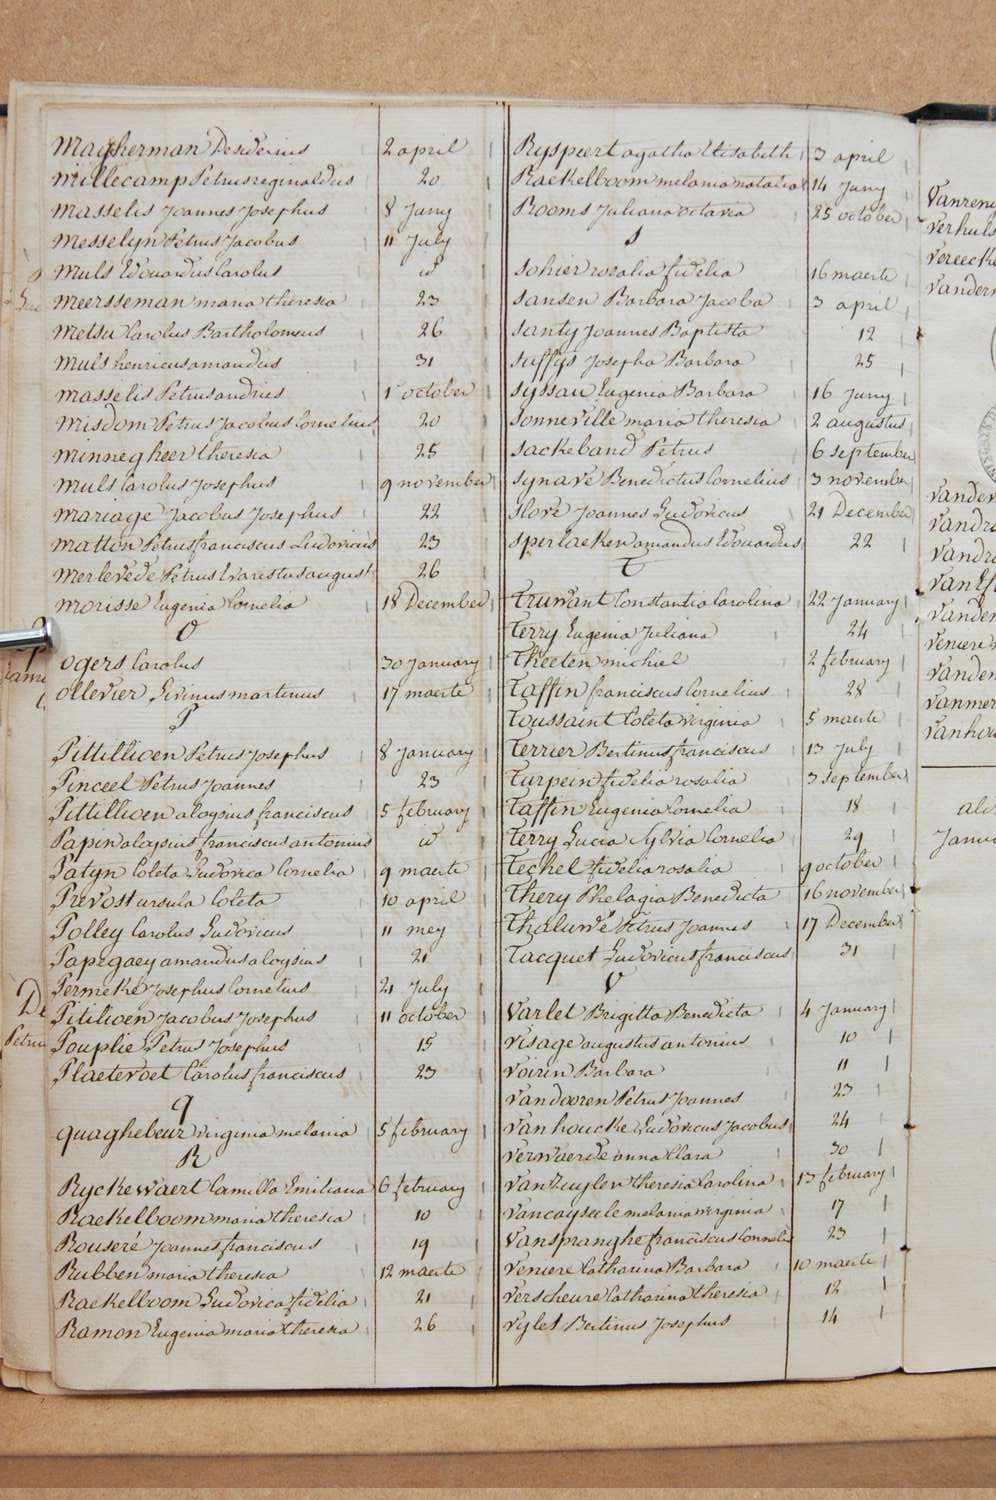 Magherman Desiderius 2 april
Millecamp Petrus reginaldus 20
Masselis Joannes Josephus 8 Juny
Messelyn Petrus Jacobus 11 July
Muls Edouardus Carolus id
Meersseman maria theresia 23
Metsu Carolus Bartholomeus 26
Muls henricus amandus 31
Masselis Petrus andries 1 october
Misdom Petrus Jacobus Cornelius 20
Minnegheer theresia 25
Muls Carolus Josephus 9 november
Mariage Jacobus Josephus 22
Matton Petrus franciscus Ludovicus 23
Merlevede Petrus Evaristus august 26
Morisse Eugenia Cornelia 18 December
O
ogers Carolus 30 January
ollevier Livinus martinus 17 maerte
P
Pittillioen Petrus Josephus 8 January
Pinceel Petrus Joannes 23
Pittillioen aloysius franciscus 5 february
Papin aloysius franciscus antonius id
Patyn Coleta Ludovica Cornelia 9 maerte
Prevost ursula Coleta 10 april
Polley Carolus Ludovicus 11 mey
Papegaey amandus aloysius 21
Permeke Josephus Cornelius 21 July
Pitilioen Jacobus Josephus 11 october
Pouplie Petrus Josephus 15
Plaetevoet Carolus franciscus 23
q
quaghebeur virginia melania 5 february
R
Ryckewaert Camilla Emiliana 6 february
Raekelboom maria theresia 10
Rouseré Joannes franciscus 19
Rubben maria theresia 12 maerte
Raekelboom Ludovica fidelia 21
Ramon Eugenia maria theresia 26
Ryspeert agatha Elisabeth 3 april
Raekelboom melania natalia 14 Juny
Rooms Juliana octavia 25 october
S
Sohier rosalia fidelia 16 maerte
Sansen Barbara Jacoba 3 april
Santy Joannes Baptista 12
Suffys Josepha Barbara 25
Syssau Eugenia Barbara 16 Juny
Sonneville maria theresia 2 augustus
Sackeband Petrus 6 september
Synave Benedictus Cornelius 3 november
Slove Joannes Ludovicus 21 December
Sperlaeken amandus Edouardus 22
T
Truwant Constantia Carolina 22 January
Terry Eugenia Juliana 24
Theeten michiel 2 february
Taffin franciscus Cornelius 28
Toussaint Coleta virginia 5 maerte
Terrier Bertinus franciscus 13 July
Turpein fidelia rosalia 3 september
Taffin Eugenia Cornelia 18
Terry Lucia Sylvia Cornelia 29
Teckel fidelia rosalia 9 october
Thery Phelagia Benedicta 16 november
Thaluwé Petrus Joannes 17 December
Tacquet Ludovicus franciscus 31
V
Varlet Brigitta Benedicta 4 January
Visage augustus antonius 10
Voirin Barbara 11
Vandooren Petrus Joannes 23
Vanhoucke Ludovicus Jacobus 24
Verwaerde anna Clara 30
Vanzuylen theresia Carolina 13 february
Vancayseele melania virginia 17
Vanspranghe franciscus Cornelis 23
Veniere Catharina Barbara 10 maerte
Verscheure Catharina theresia 12
Vylet Bertinus Josephus 14